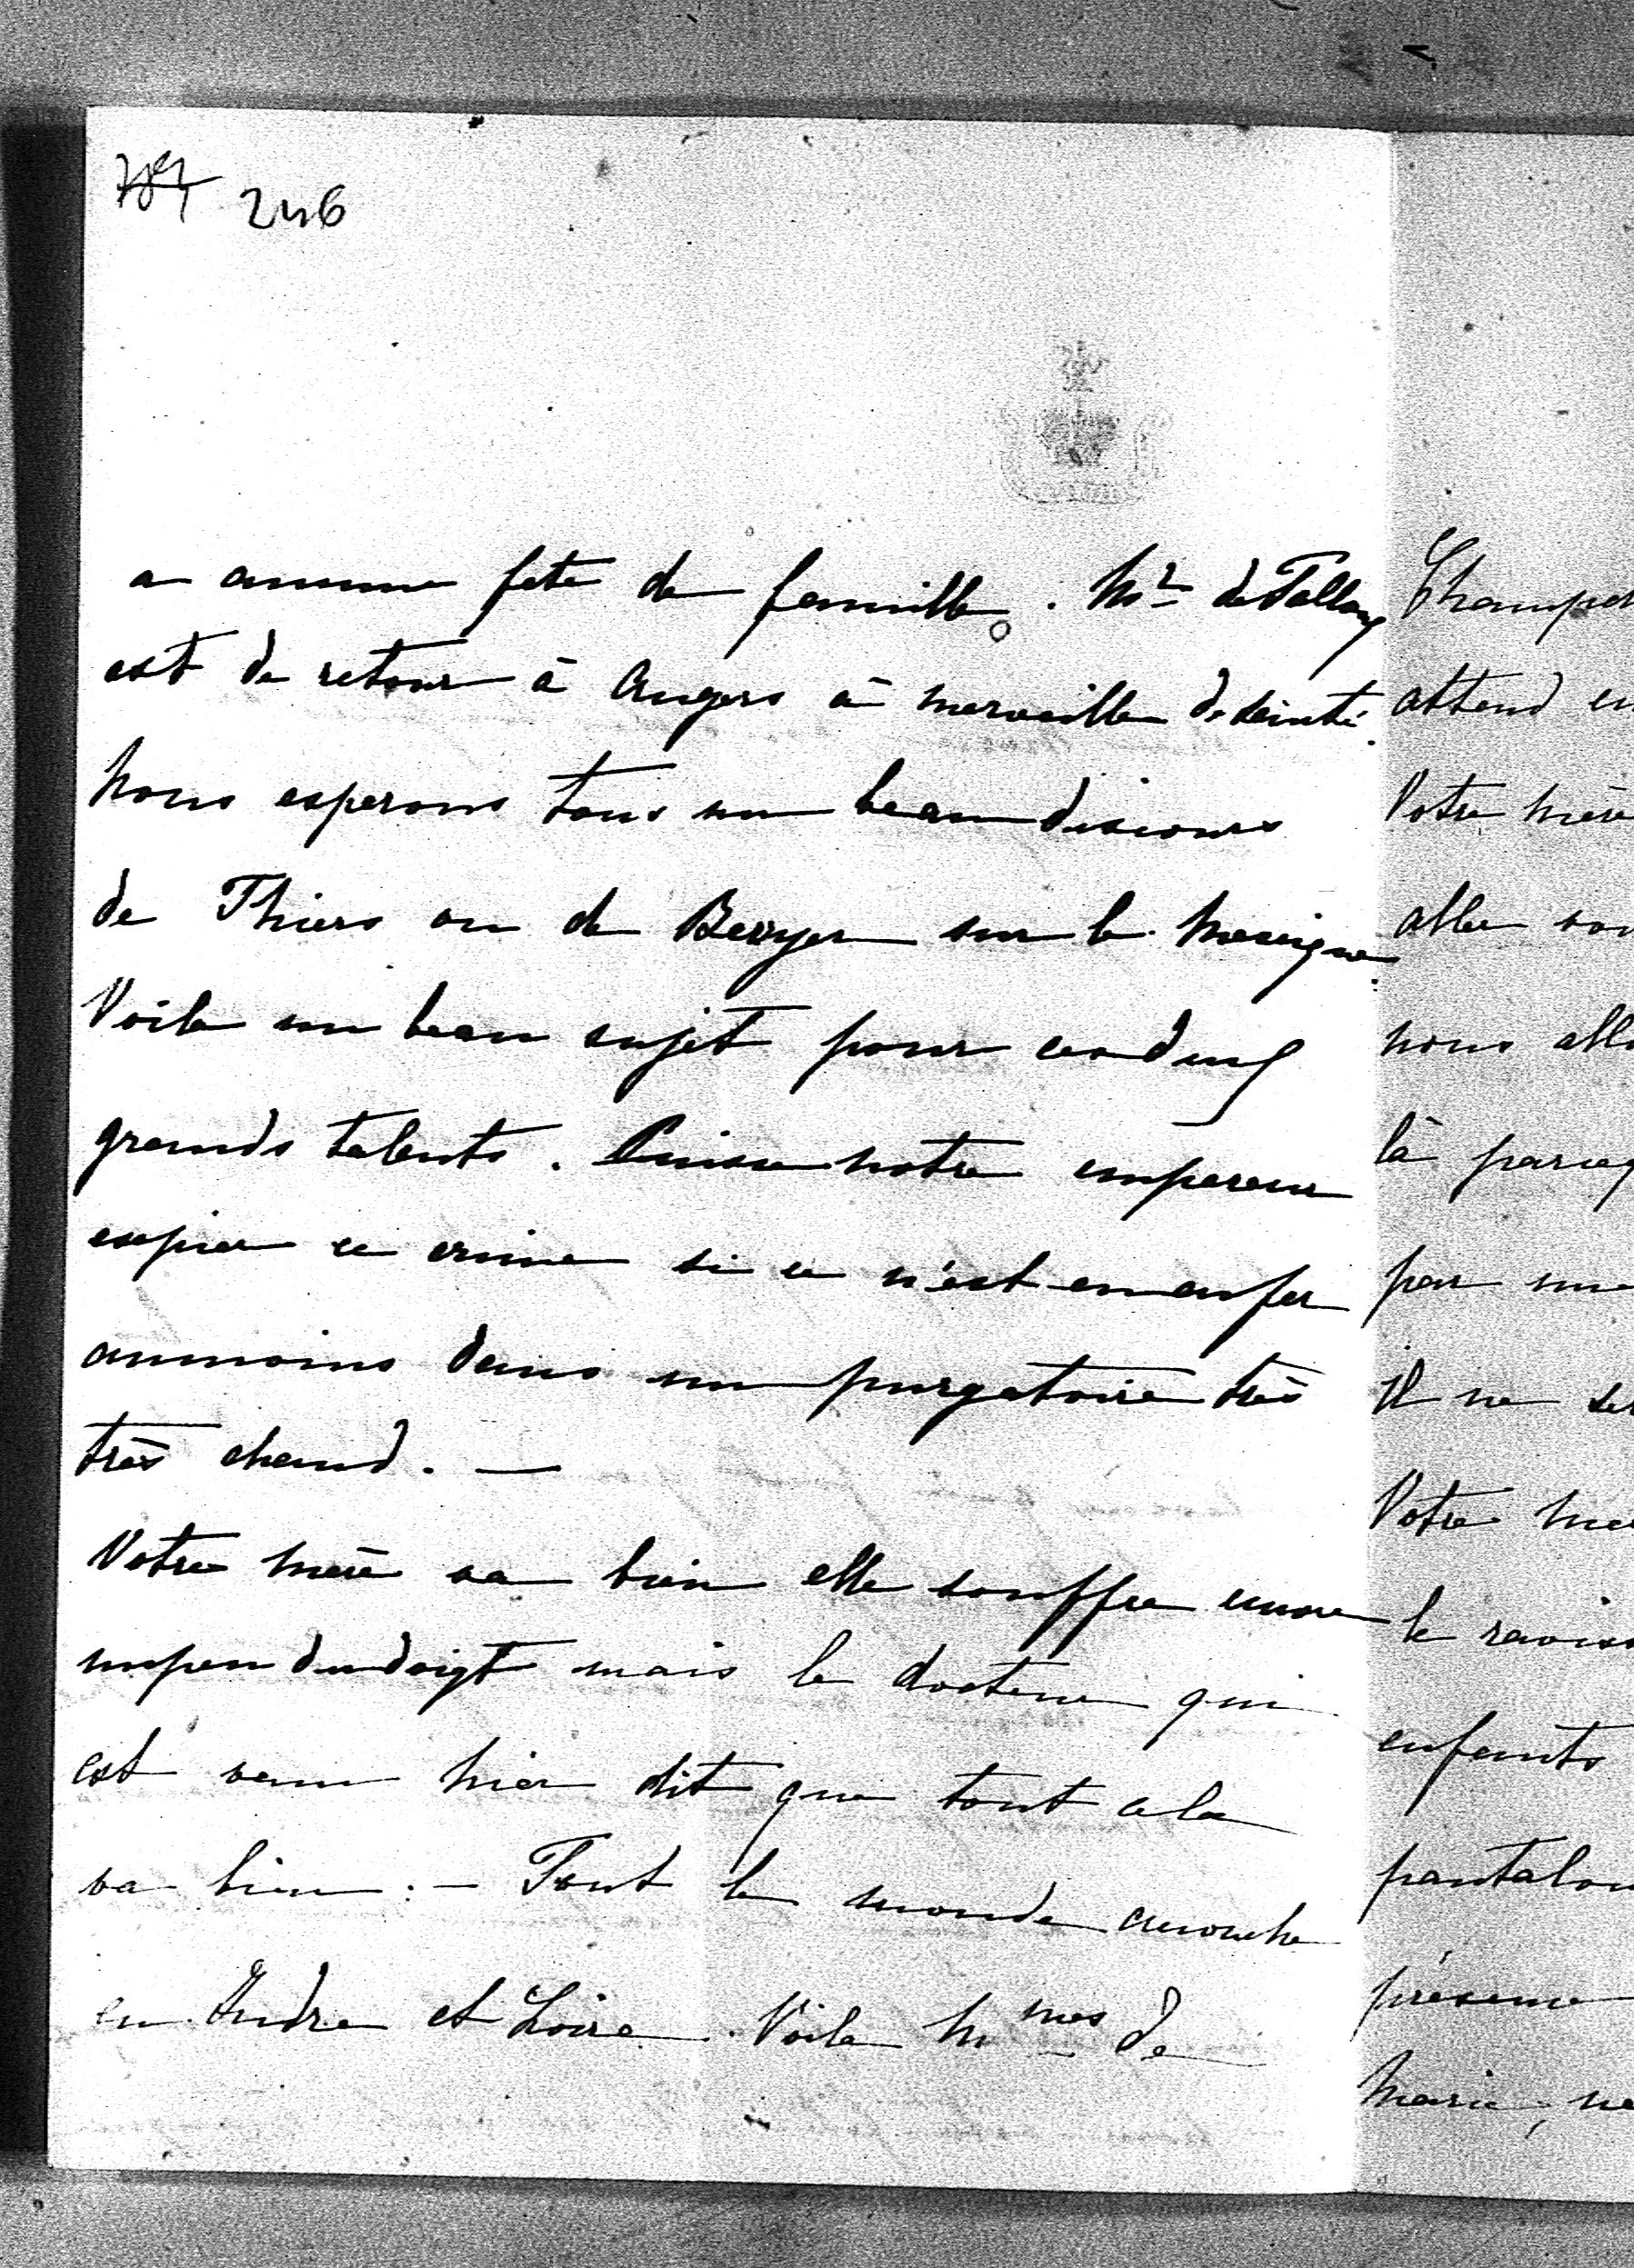 246
a aucune fete de famille. Mr de Falloux
est de retour à Angers à merveille de sainté.
Nous esperons tous un beau discours
de Thiers ou de Berryer sur le Mexique.
Voila un beau sujet pour ces deux
grands talents. Puisse notre empereur
expier ce crime si ce n'est en enfer
aumoins dans un purgatoire très
très chaud. —
Votre mère va bien elle souffre encore
unpeu du doigt mais le docteur qui
est venu hier dit que tout cela
va bien. — Tout le monde accouche
en Indre et Loire. Voila Mmes de
attend
Votre mère
aller
nous
là
par une
il ne
Votre
le
enfants
Marie,